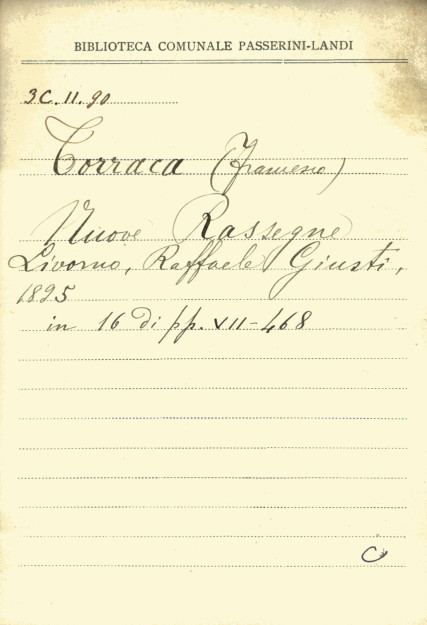 BIBLIOTECA COMUNALE PASSERINI-LANDI
3C. II. 90
Torraca (Francesco)
Nuove Rassegne
Livorno, Raffaele Giusti,
1895
in 16 di pp. VII-468
C